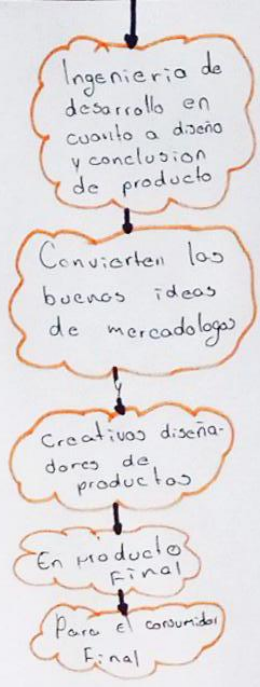 Ingenieria de
desarrollo en
cuanto a diseño
y conclusion
de producto
Convierten las
buenas ideas
de mercadologos
y
Creativos diseña-
dores de
productos
En Producto
Final
Para el consumidor
Final